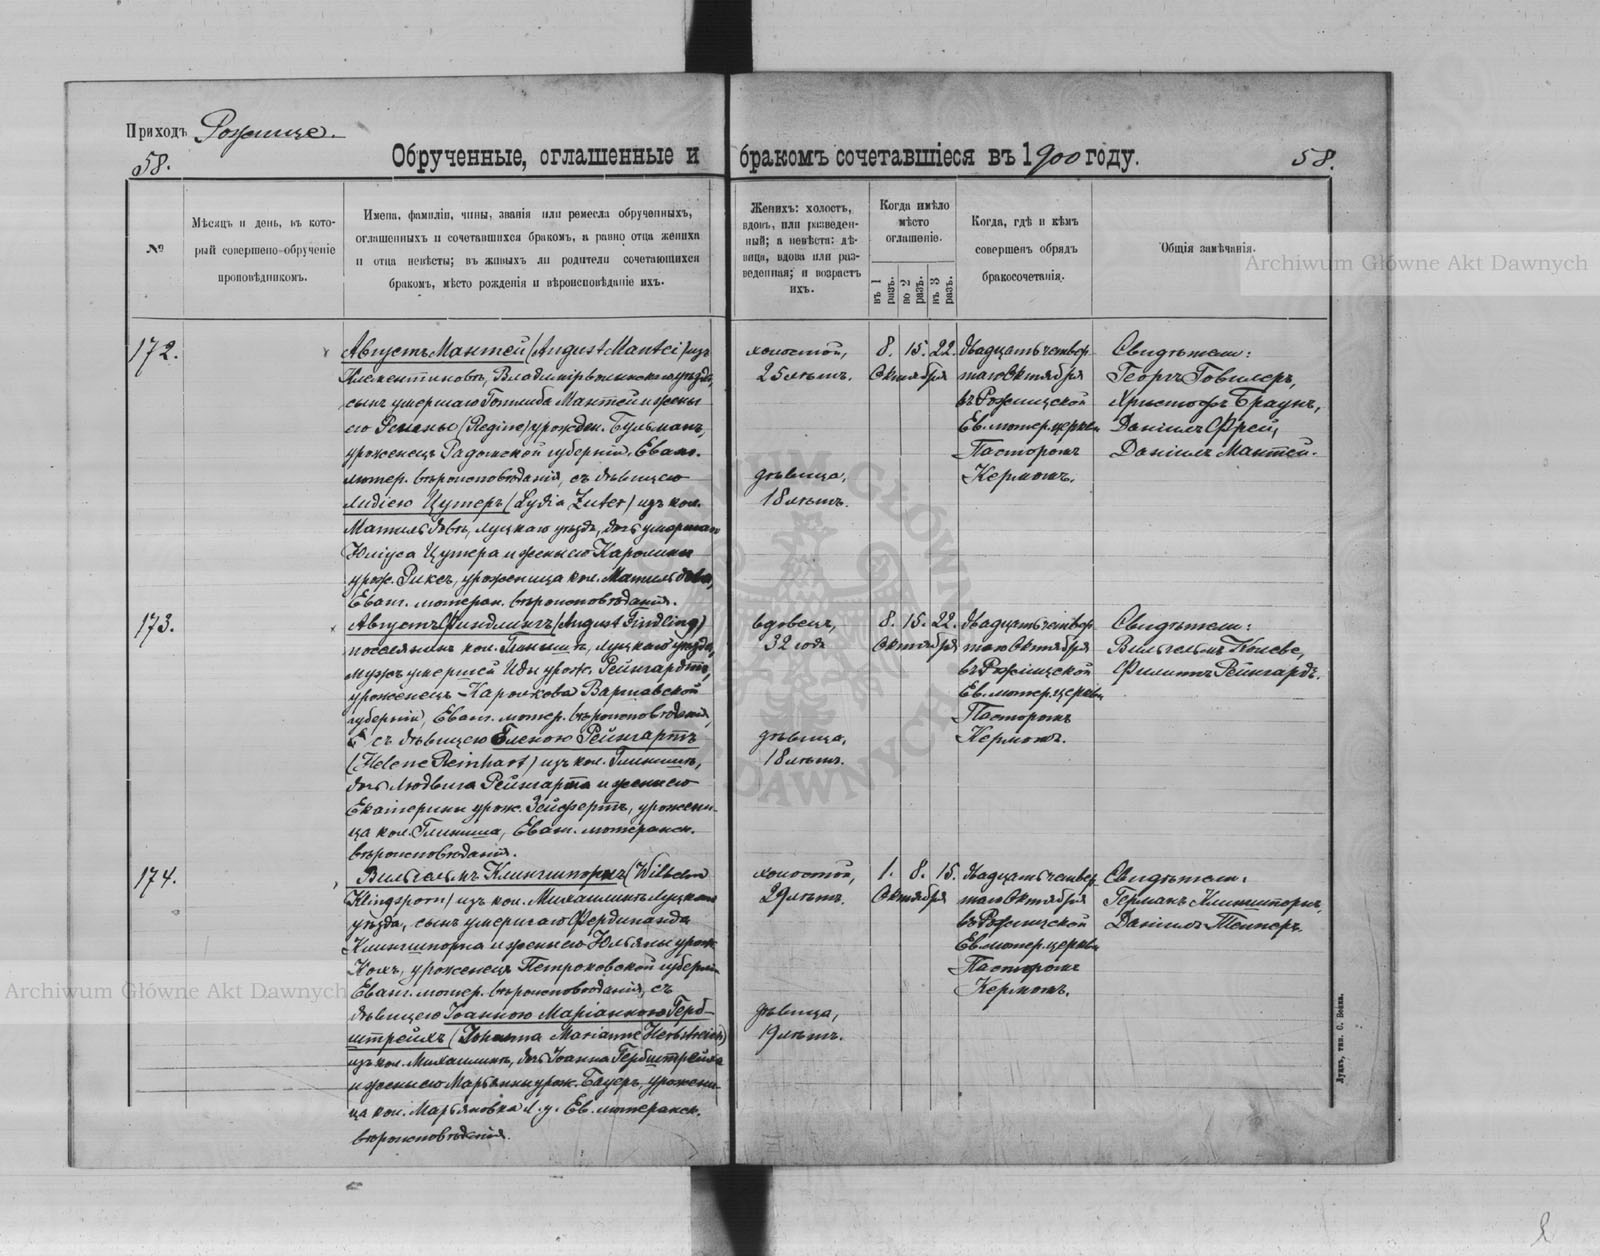 Приходъ Рожище.
58.
Обрученные, оглашенные и бракомъ сочетавшіеся въ 1900 году.
58.
№
Мѣсяцъ и день, въ кото-
рый совершено обрученіе
проповѣдникомъ.
Имена, фамиліи, чины, званія или ремесла обрученныхъ,
оглашенныхъ и сочетавшихся бракомъ, а равно отца жениха
и отца невѣсты; въ живыхъ ли родители сочетающихся
бракомъ, мѣсто рожденія и вѣроисповѣданіе ихъ.
Женихъ: холостъ,
вдовъ, или разведен-
ный; а невѣста: дѣ-
вица, вдова или раз-
веденная; и возрастъ
ихъ.
Когда имѣло
мѣсто
оглашеніе.
въ 1 разъ.
во 2 разъ.
въ 3 разъ.
Когда, гдѣ и кѣмъ
совершенъ обрядъ
бракосочетанія.
Общія замѣчанія.
Archiwum Główne Akt Dawnych
172.
Августъ Мантей (August Mantei) изъ
Клементиновъ, Владимірволынскаго уѣзда,
сынъ умершаго Готлиба Мантей и жены
его Регины (Regine) урожден. Бульманъ,
уроженецъ Радомской губерніи, Еванг.
лютер. вѣроисповѣданія, съ дѣвицею
Лидіею Цутеръ (Lydia Zuter) изъ кол.
Матильдовъ, луцкаго уѣзда, дочь умершаго
Юліуса Цутера и жены его Каролины
урож. Рикъ, уроженица кол. Матильдовъ,
Еванг. лютеран. вѣроисповѣданія.
холостой,
25 лѣтъ.
дѣвица,
18 лѣтъ.
8. 15. 22.
Октября
Двадцать четвер
таго Октября
въ Рожищской
Ев. лютер. церкви
Пасторомъ
Кермомъ.
Свидѣтели:
Георгъ Говилеръ,
Христофъ Браунъ,
Даніилъ Фрей,
Даніилъ Мантей.
173.
Августъ Финдлингъ (August Findling)
поселянинъ кол. луцкаго уѣзда,
мужъ умершей Иды урож. Рейнгардтъ,
уроженецъ Варшавской
губерніи, Еванг. лютер. вѣроисповѣданія,
съ дѣвицею Еленою Рейнгартъ
(Helene Reinhart) изъ кол. Глинищъ,
дочь Людвига Рейнгарта и жены его
Екатерины урож. Зейфертъ, урожени-
ца кол. Глинища, Еванг. лютеранск.
вѣроисповѣданія.
вдовецъ,
32 года
дѣвица,
18 лѣтъ.
8. 15. 22.
Октября
Двадцать четвер
таго Октября
въ Рожищской
Ев. лютер. церкви
Пасторомъ
Кермомъ.
Свидѣтели:
Вильгельмъ
Филиппъ Рейнгардъ.
174.
Вильгельмъ Клингшпорнъ (Wilhelm
Klingsporn) изъ кол. Михайлинъ Луцкаго
уѣзда, сынъ умершаго Фердинанда
Клингшпорна и жены его Юльяны урож.
уроженецъ Петроковской губерніи
Еванг. лютер. вѣроисповѣданія, съ
дѣвицею Іоанною Маріанною Герб-
штрейхъ (Johanna Marianne Herbstreich)
изъ кол. Михайлинъ, дочь Іоанна Гербштрейха
и жены его Марьянны урож. Бауеръ, урожени-
ца кол. Марьяновка л. у. Ев. лютеранск.
вѣроисповѣданія.
холостой,
29 лѣтъ.
дѣвица,
19 лѣтъ.
1. 8. 15.
Октября
Двадцать четвер
таго Октября
въ Рожищской
Ев. лютер. церкви
Пасторомъ
Кермомъ.
Свидѣтели:
Германъ Клингшпорнъ,
Даніилъ Теппер.
Archiwum Główne Akt Dawnych
ARCHIWUM GŁÓWNE AKT DAWNYCH